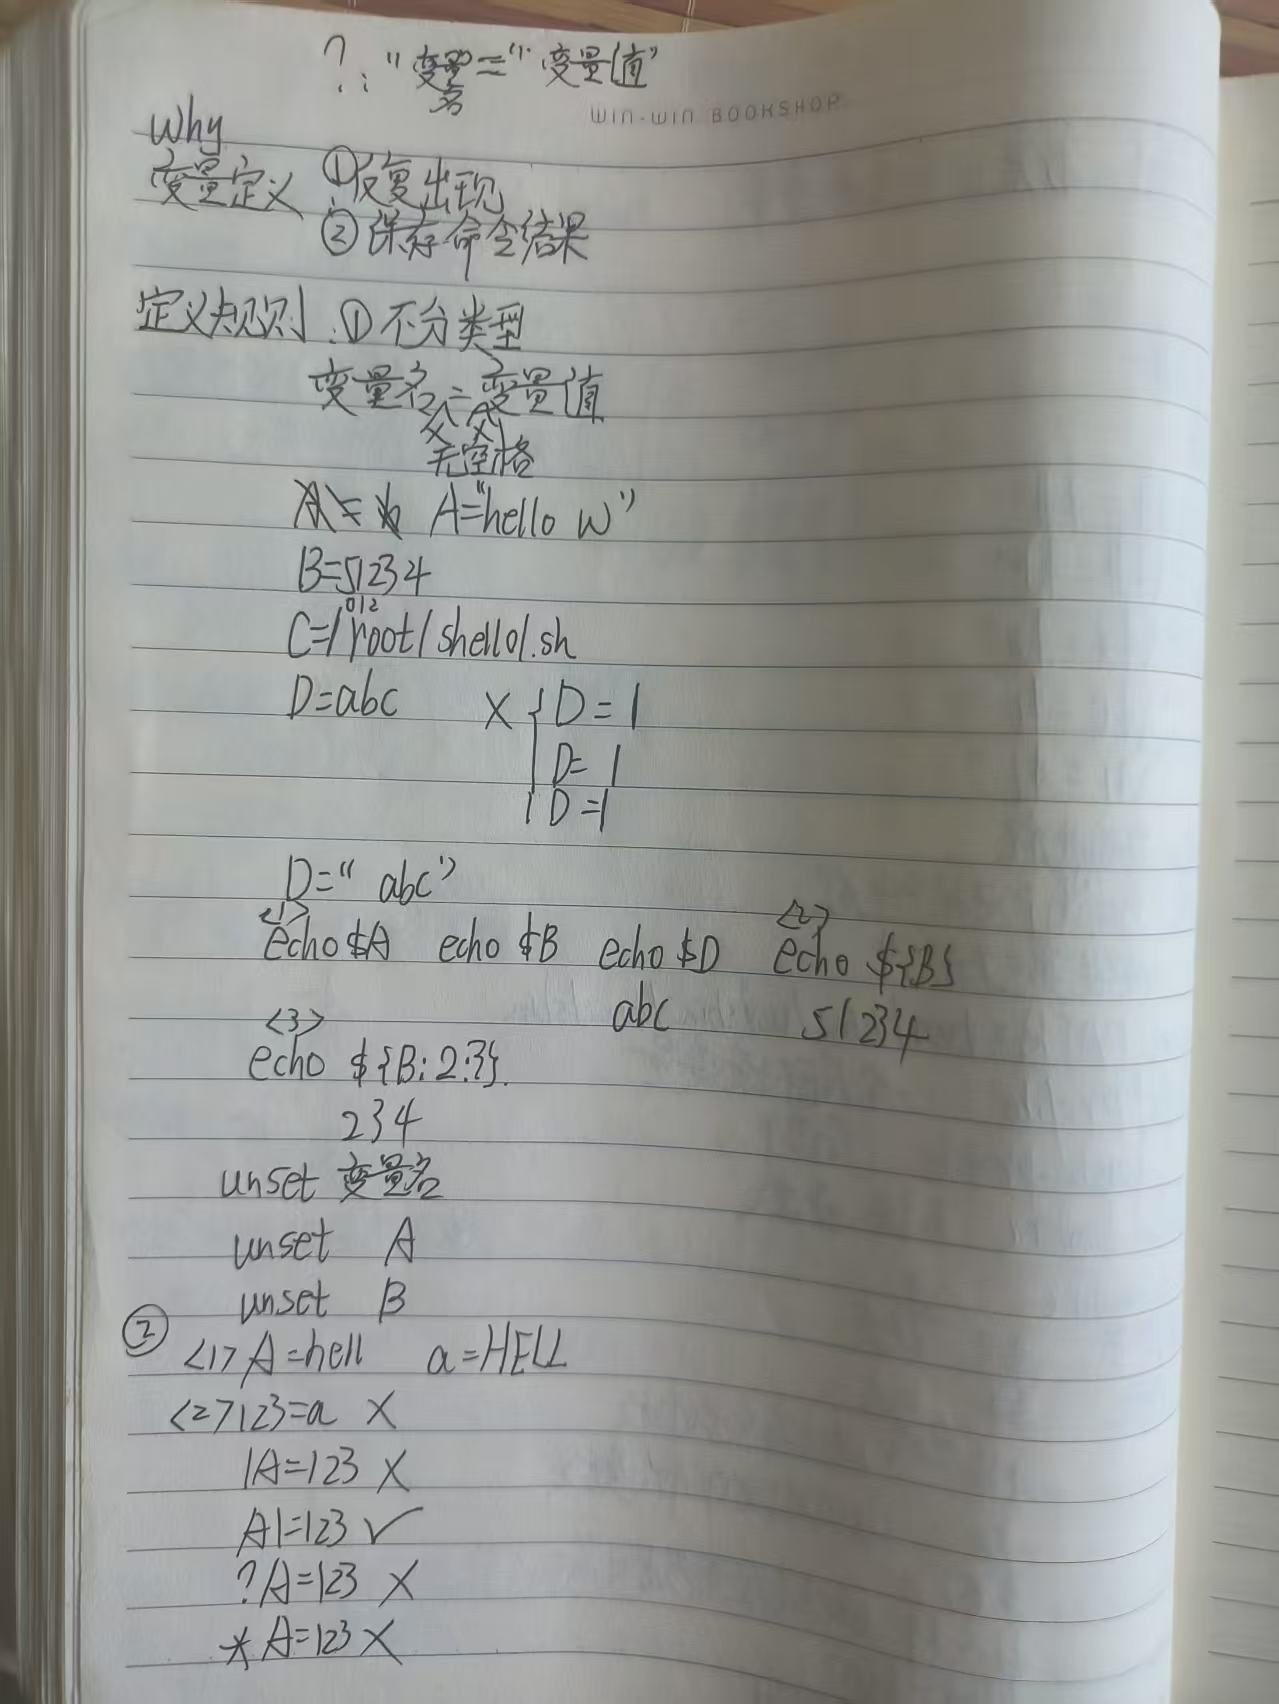 ?: "变量名"="变量值"
WIN-WIN BOOKSHOP
Why
变量定义 ①反复出现
②保存命令结果
定义规则:①不分类型
变量名=变量值
无空格
A="hello w"
B=51234
012
C=/root/shello1.sh
D=abc × { D = 1
D= 1
D =1
D=" abc"
<1> <2>
echo $A echo $B echo $D echo ${B}
abc 51234
<3>
echo ${B:2:3}.
234
unset 变量名
unset A
unset B
② <1> A=hell a=HELL
<2> 123=a ×
1A=123 ×
A1=123 ✓
?A=123 ×
*A=123 ×